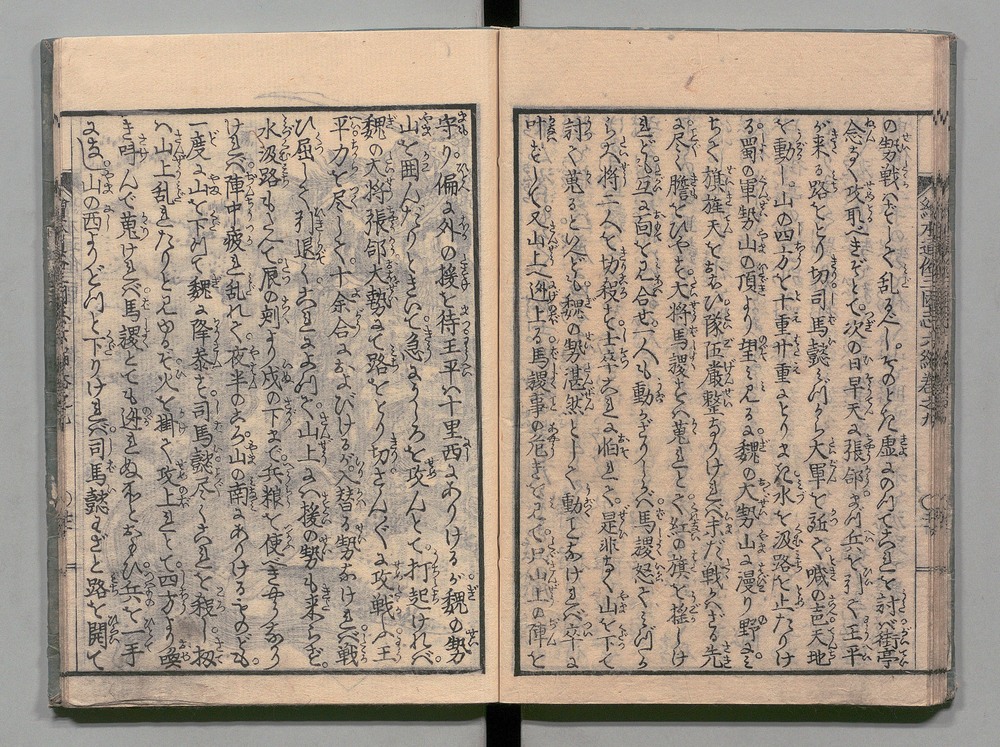 の勢戦ハずして乱るべし。そのとき虚にのつてこれを討バ街亭
念なく攻取べきぞとて次の日早天に張郃に兵を引て王平
が来る路をとり切司馬懿ミづから大軍を延て喊の声天地
を動し山の四方を十重廿重にとりまき水を汲路を止たりけ
る蜀の軍勢山の頂より望ミ見るに魏の大勢山に漫り野にミ
ちて旗旌天をおほひ隊伍厳整なりけれバ未だ戦ハざる先
に尽く膽をひやす大将馬謖これハ蒐れとて紅の旗を揺しけ
れども互に面を見合せ一人も動かざりしかバ馬謖怒てミづか
ら大将二人を切殺す士卒これに怕れて是非なく山を下て
討て蒐るといへども魏の勢湛然として動ざりけれバ卒に
叶ずして又山上へ逃上る馬謖事の危きを見て只山上の陣を
守り偏に外の援を待王平ハ十里西にありけるが魏の勢
山を囲んだりときいて急にうしろを攻んとて打起けれバ
魏の大将張郃大勢にて路をとり切さんざんに攻戦ふ王
平力を尽して十余合におよびけるが入替る勢なけれバ戦
ひ屈して引退くこれによつて山上にハ援の勢も来らず
水汲路もたへて辰の刻より戌の下まで兵粮を使べきやうなかり
けれバ陣中疲れ乱れて夜半のころ山の南にありけるものども
一度に山を下つて魏に降参す司馬懿尽くこれを殺し扨
ハ山上乱れたりと見ゆるぞ火を掛て攻上れとて四方より喚
き叫んで蒐けれバ馬謖とても逃れぬ所とおもひ兵を一手
になし山の西よりどつと下りけれバ司馬懿わざと路を開て